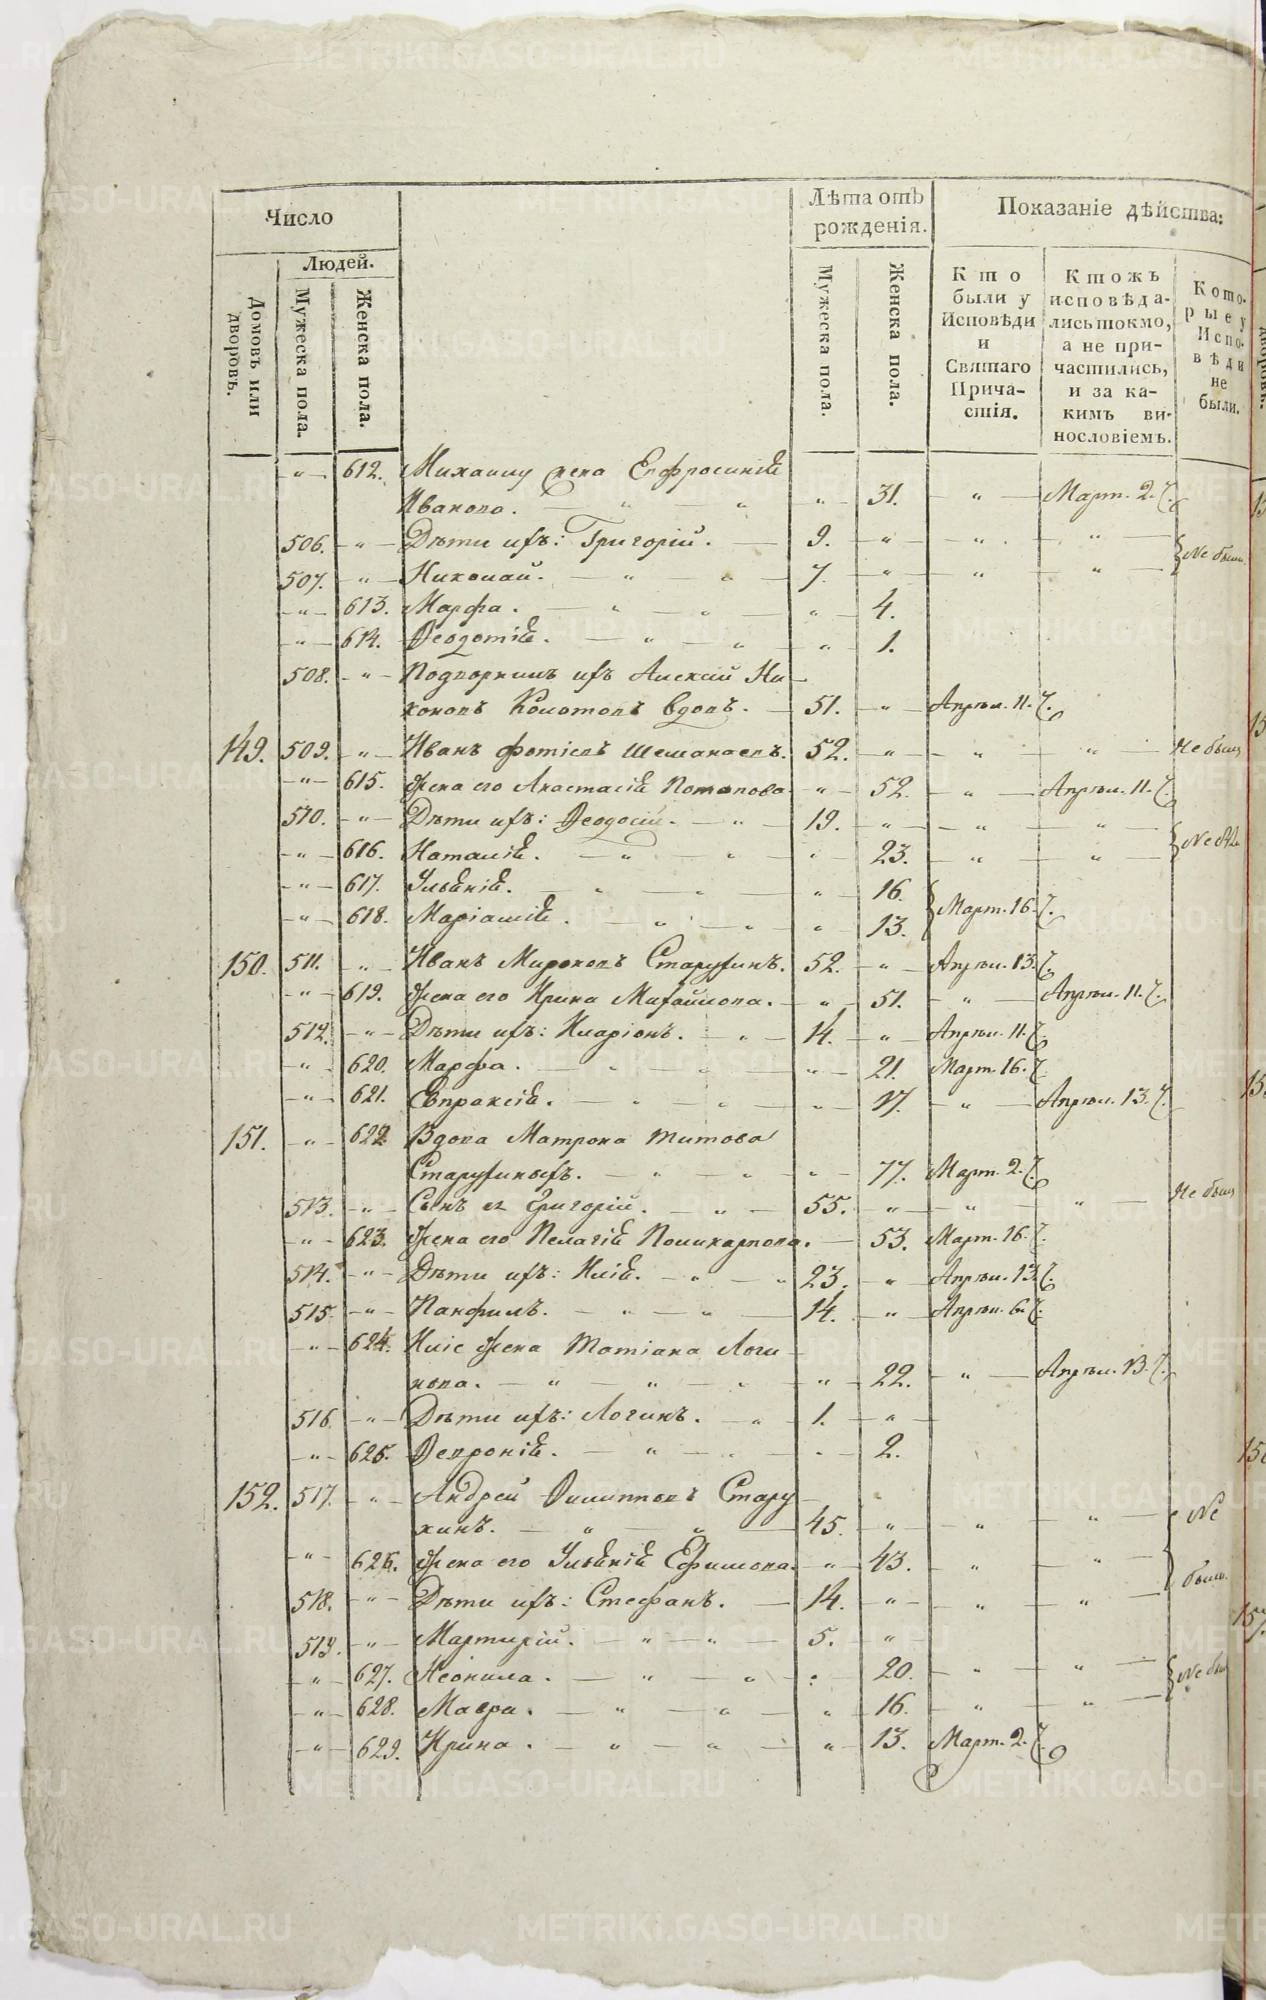 Число
Лѣта отъ рожденія.
Показаніе дѣйства:
Людей.
Домовъ или дворовъ.
Мужеска пола.
Женска пола.
Мужеска пола.
Женска пола.
Кто были у Исповѣди и Святаго Причастія.
Ктожъ исповѣдались токмо, а не причастились, и за какимъ винословіемъ.
Которые у Исповѣди не были.
612. Михаилу жена Евфросинія
Иванова. 31. Март. 2. ч.
506. Дѣти ихъ: Григорій. 9.
507. Николай. 7. Не были
613. Марфа. 4.
614. Ѳеодотія. 1.
508. Подворникъ ихъ Алексій Ни
коновъ вдовъ. 51. Апрѣл. 11. ч.
149. 509. Иванъ Фотіевъ Шеманаевъ. 52. Не былъ
615. Жена его Анастасія Потапова 52. Апрѣл. 11. ч.
510. Дѣти ихъ: Ѳеодосій. 19.
616. Наталія. 23.
617. Ульянія. 16.
618. Маріамія. 13. Март. 16. ч.
150. 511. Иванъ Мироновъ Старухинъ. 52. Апрѣл. 13. ч.
619. Жена его Ирина Михайлова. 51. Апрѣл. 11. ч.
512. Дѣти ихъ: Иларіонъ. 14. Апрѣл. 11. ч.
620. Марфа. 21. Март. 16. ч.
621. Евпраксія. 17. Апрѣл. 13. ч.
151. 622. Вдова Матрона Титова
Старухиныхъ. 77. Март. 2. ч.
513. Сынъ ея Григорій. 55. Не былъ
623. Жена его Пелагія Поликарпова. 53. Март. 16. ч.
514. Дѣти ихъ: Илія. 23. Апрѣл. 13. ч.
515. Панфилъ. 14. Апрѣл. 6. ч.
624. Иліе жена Татіана Логи
нова. 22. Апрѣл. 13. ч.
516. Дѣти ихъ: Логинъ. 1.
625. Ѳевронія. 2.
152. 517. Андрей Филипповъ Стару
хинъ. 45. Не
626. Жена его Ульянія Ефимова. 43.
были.
518. Дѣти ихъ: Стефанъ. 14.
519. Мартирій. 5.
627. Неонила. 20. Не был
628. Мавра. 16.
629. Ирина. 13. Март. 2. ч.
METRIKI.GASO-URAL.RU